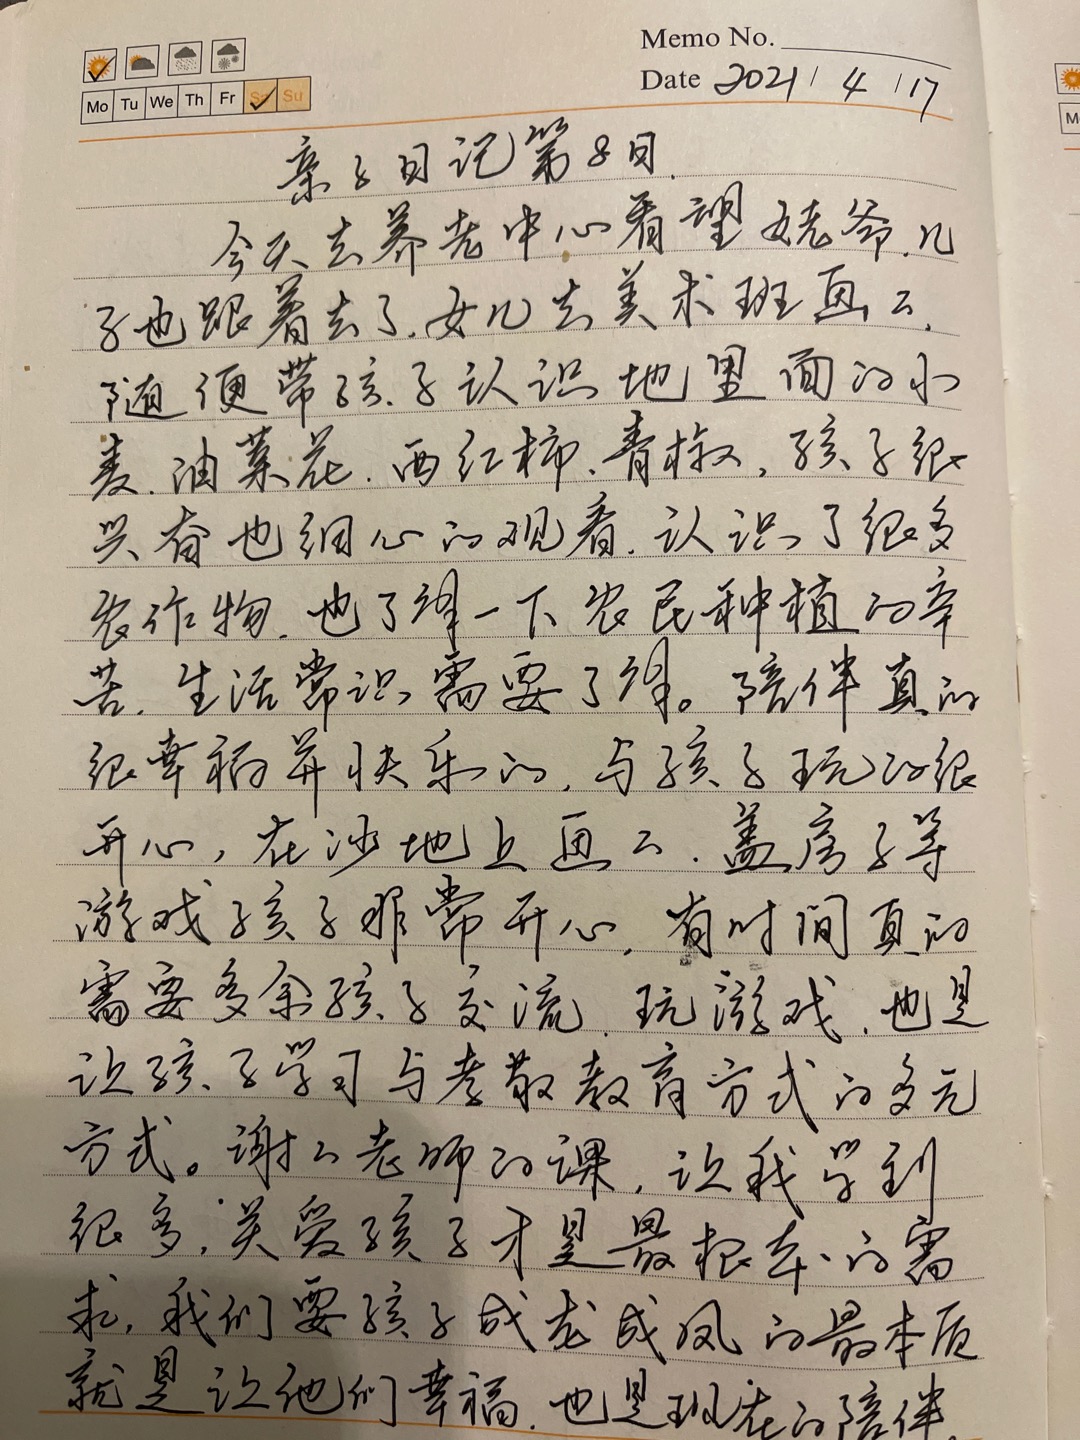 Memo No.
Mo Tu We Th Fr Sa Su
Date 2021/4/17
亲子日记第8日.
今天去养老中心看望姥爷.儿
子也跟着去了.女儿去美术班画画.
随便带孩子认识地里面的小
麦.油菜花.西红柿.青椒,孩子很
兴奋也细心的观看.认识了很多
农作物.也了解一下农民种植的辛
苦.生活常识需要了解。陪伴真的
很幸福并快乐的,与孩子玩的很
开心,在沙地上画画.盖房子等
游戏孩子非常开心,有时间真的
需要多余孩子交流.玩游戏.也是
让孩子学习与孝敬教育方式的多元
方式。谢谢老师的课,让我学到
很多,关爱孩子才是最根本的需
求,我们要孩子成龙成凤的最本质
就是让他们幸福.也是现在的陪伴.